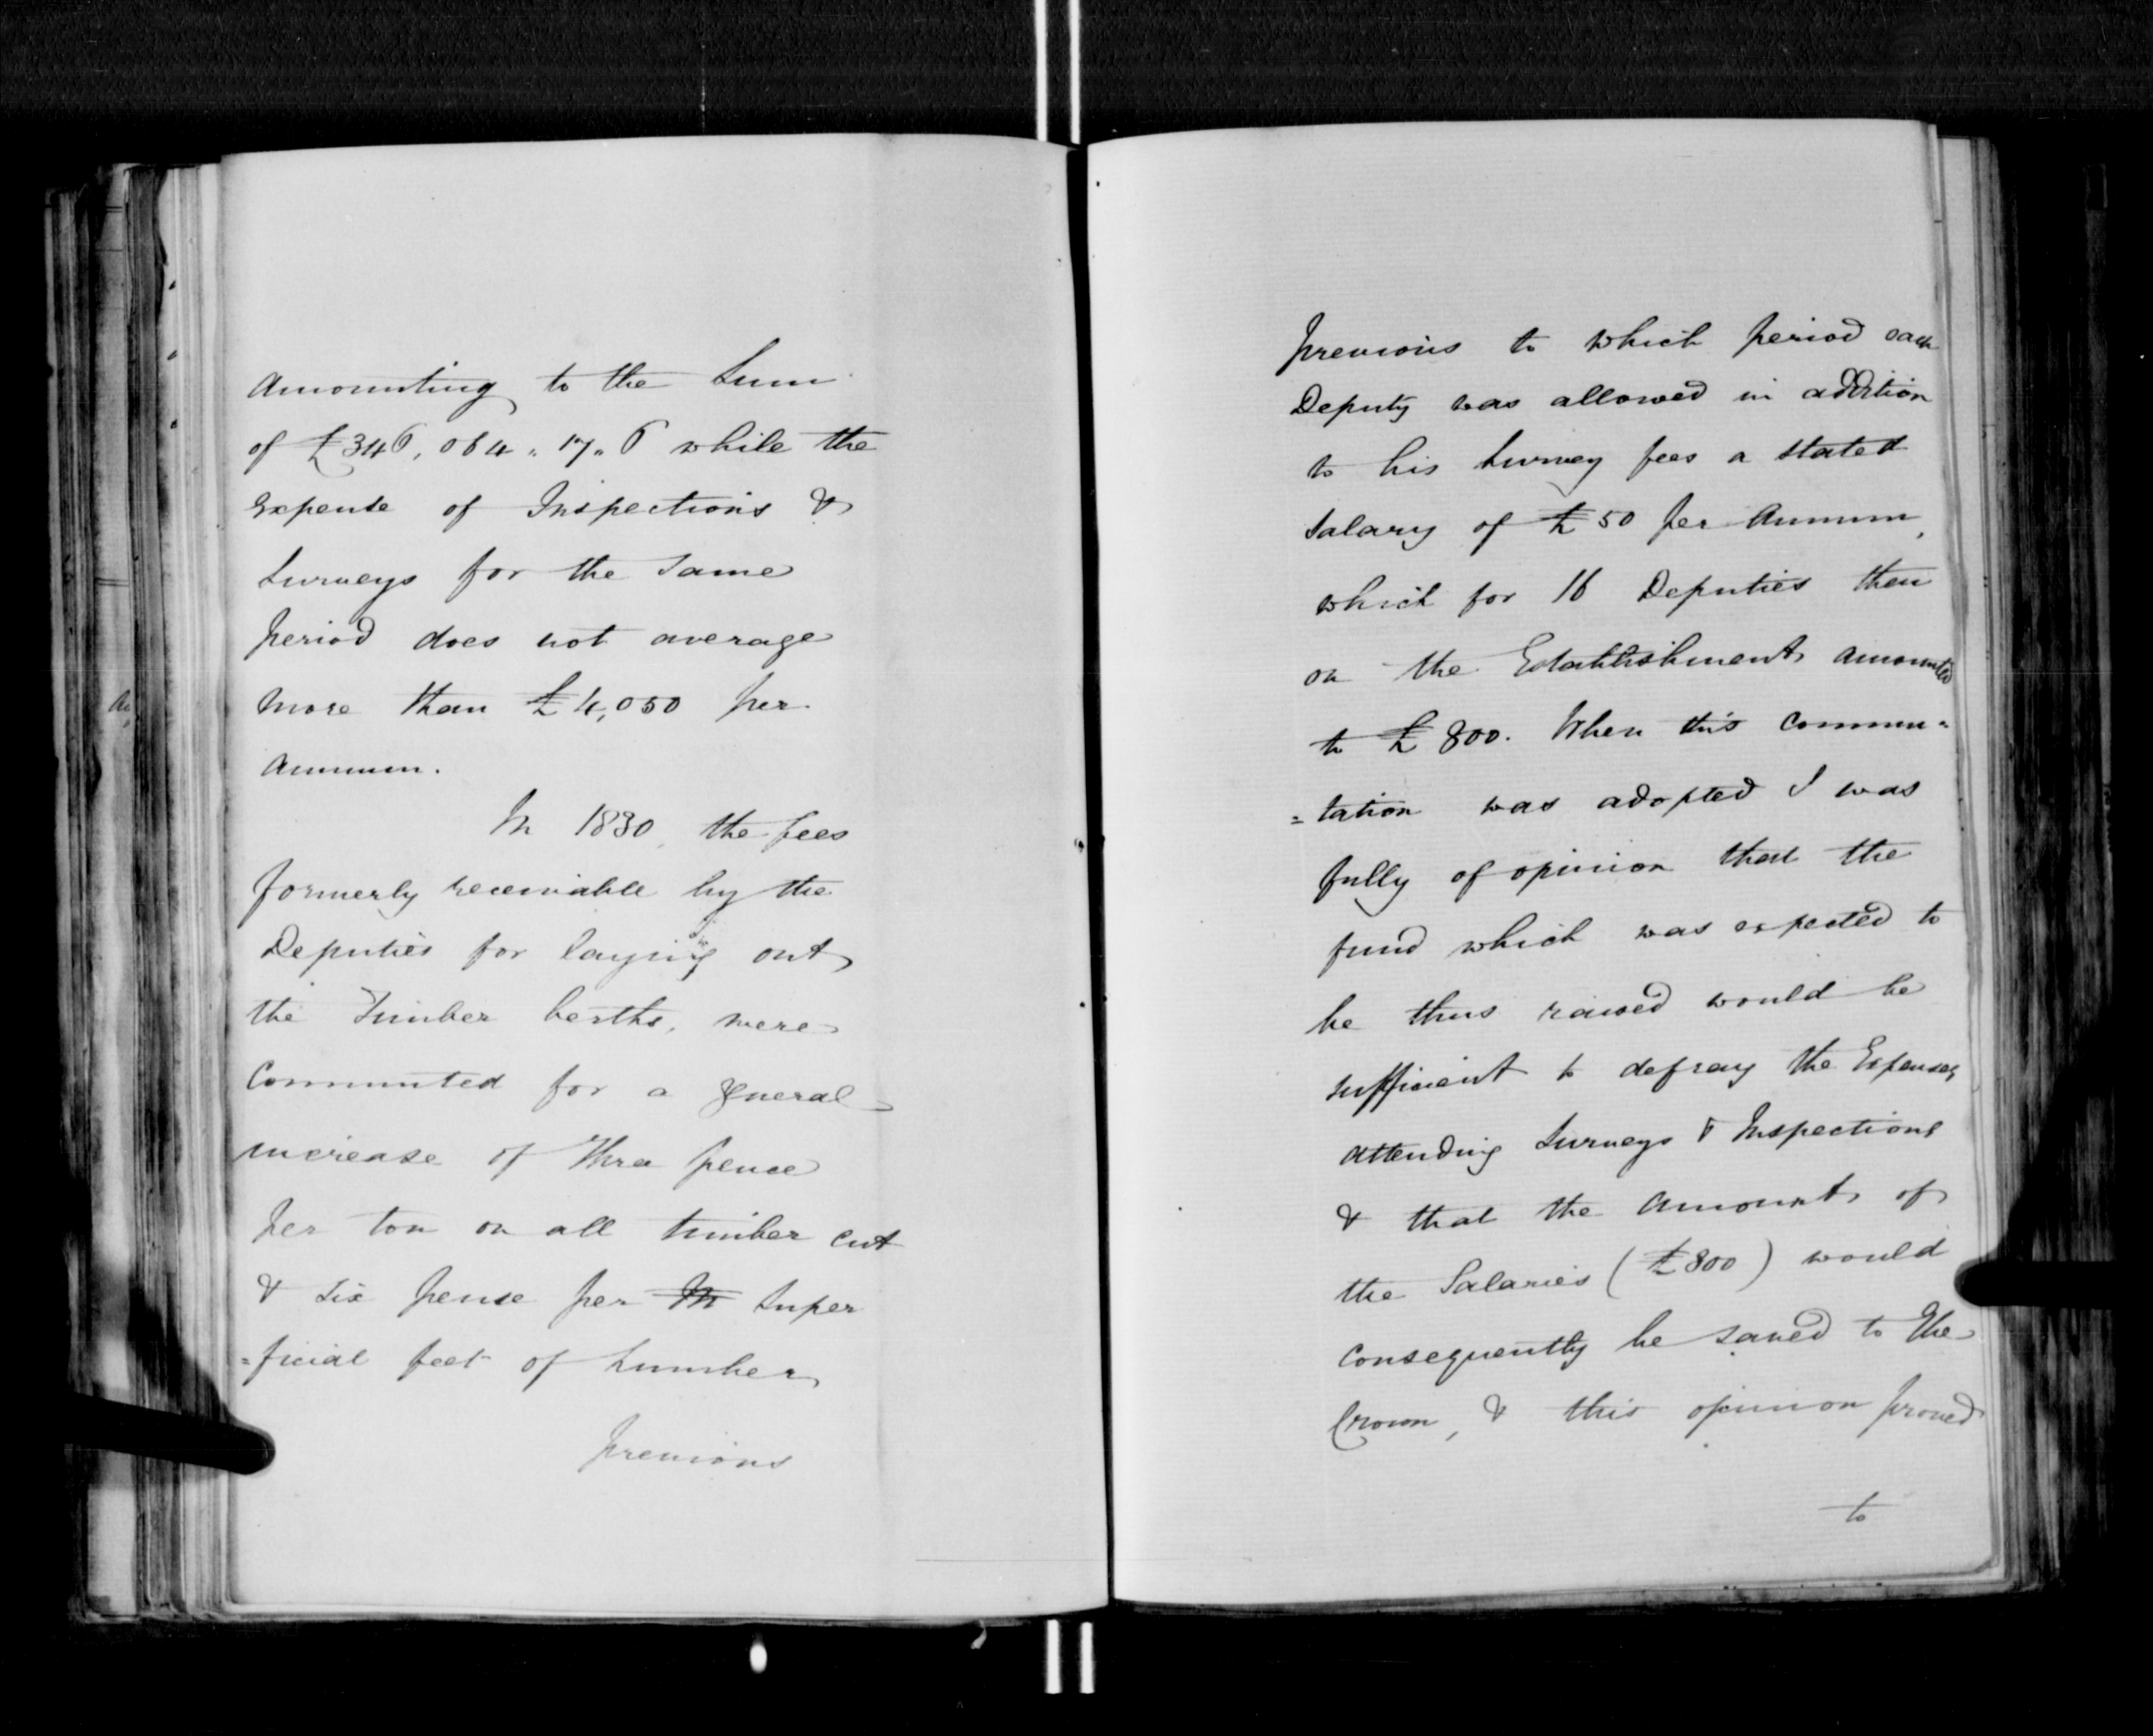 amounting to the Sum
of £346,064 " 17 " 6 while the
Expense of Inspections &
Surveys for the same
period does not average
more than £4,050 per
annum.
In 1830, the fees
formerly receivable by the
Deputies for laying out
the Timber berths, were
Commuted for a general
increase of Three pence
per ton on all timber cut
& six pense per M Super
=ficial feet of Lumber
previous
previous to which period each
Deputy was allowed in addition
to his Survey fees a stated
Salary of £50 per Annum,
which for 16 Deputies then
on the Establishment amounted
to £800. When this Commu=
=tation was adopted I was
fully of opinion that the
fund which was expected to
be thus raised would be
sufficient to defray the Expenses
attending Surveys & Inspections
& that the amount of
the Salaries (£800) would
consequently be saved to the
Crown, & this opinion proved
to